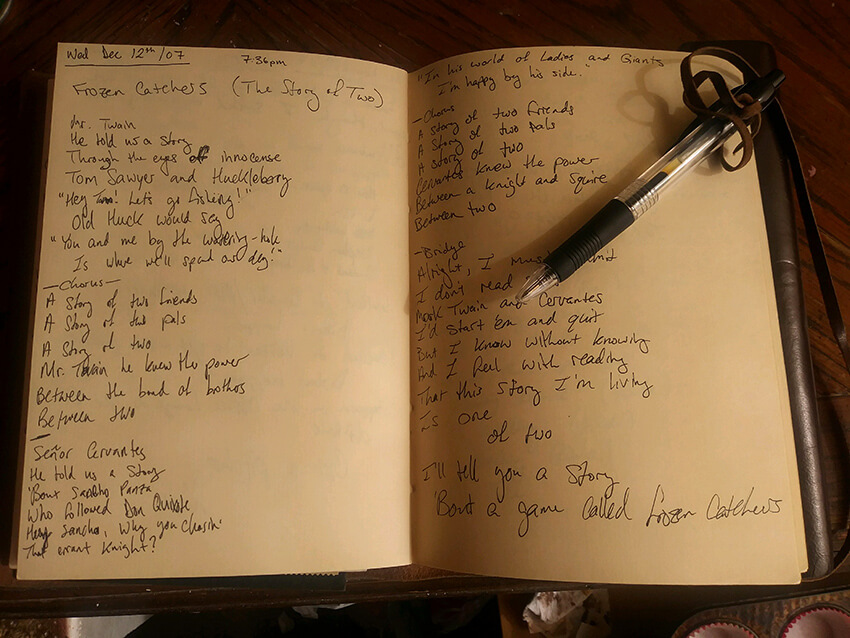 Wed Dec 12th/07
7:36pm
Frozen Catchers (The Story of Two)
Mr. Twain
He told us a story
Through the eyes of innocense
Tom Sawyer and Huckleberry
"Hey Tom! Let's go fishing!"
Old Huck would say
"You and me by the watering-hole
Is where we'll spend our day!"
—Chorus—
A Story of two friends
A Story of two pals
A Story of two
Mr. Twain he knew the power
Between the bond of brothers
Between two
Señor Cervantes
He told us a Story
'Bout Sancho Panza
Who followed Don Quixote
Hey Sancho, why you chasin'
That errant knight?
"In his world of Ladies and Giants
I'm happy by his side."
—Chorus
A story of two friends
A Story of two pals
A story of two
Cervantes knew the power
Between a knight and squire
Between two
—Bridge
Alright, I must
I don't read
Mark Twain and Cervantes
I'd start 'em and quit
But I know without knowing
And I feel with reading
That this story I'm living
Is one
of two
I'll tell you a Story
'Bout a game called Frozen Catchers